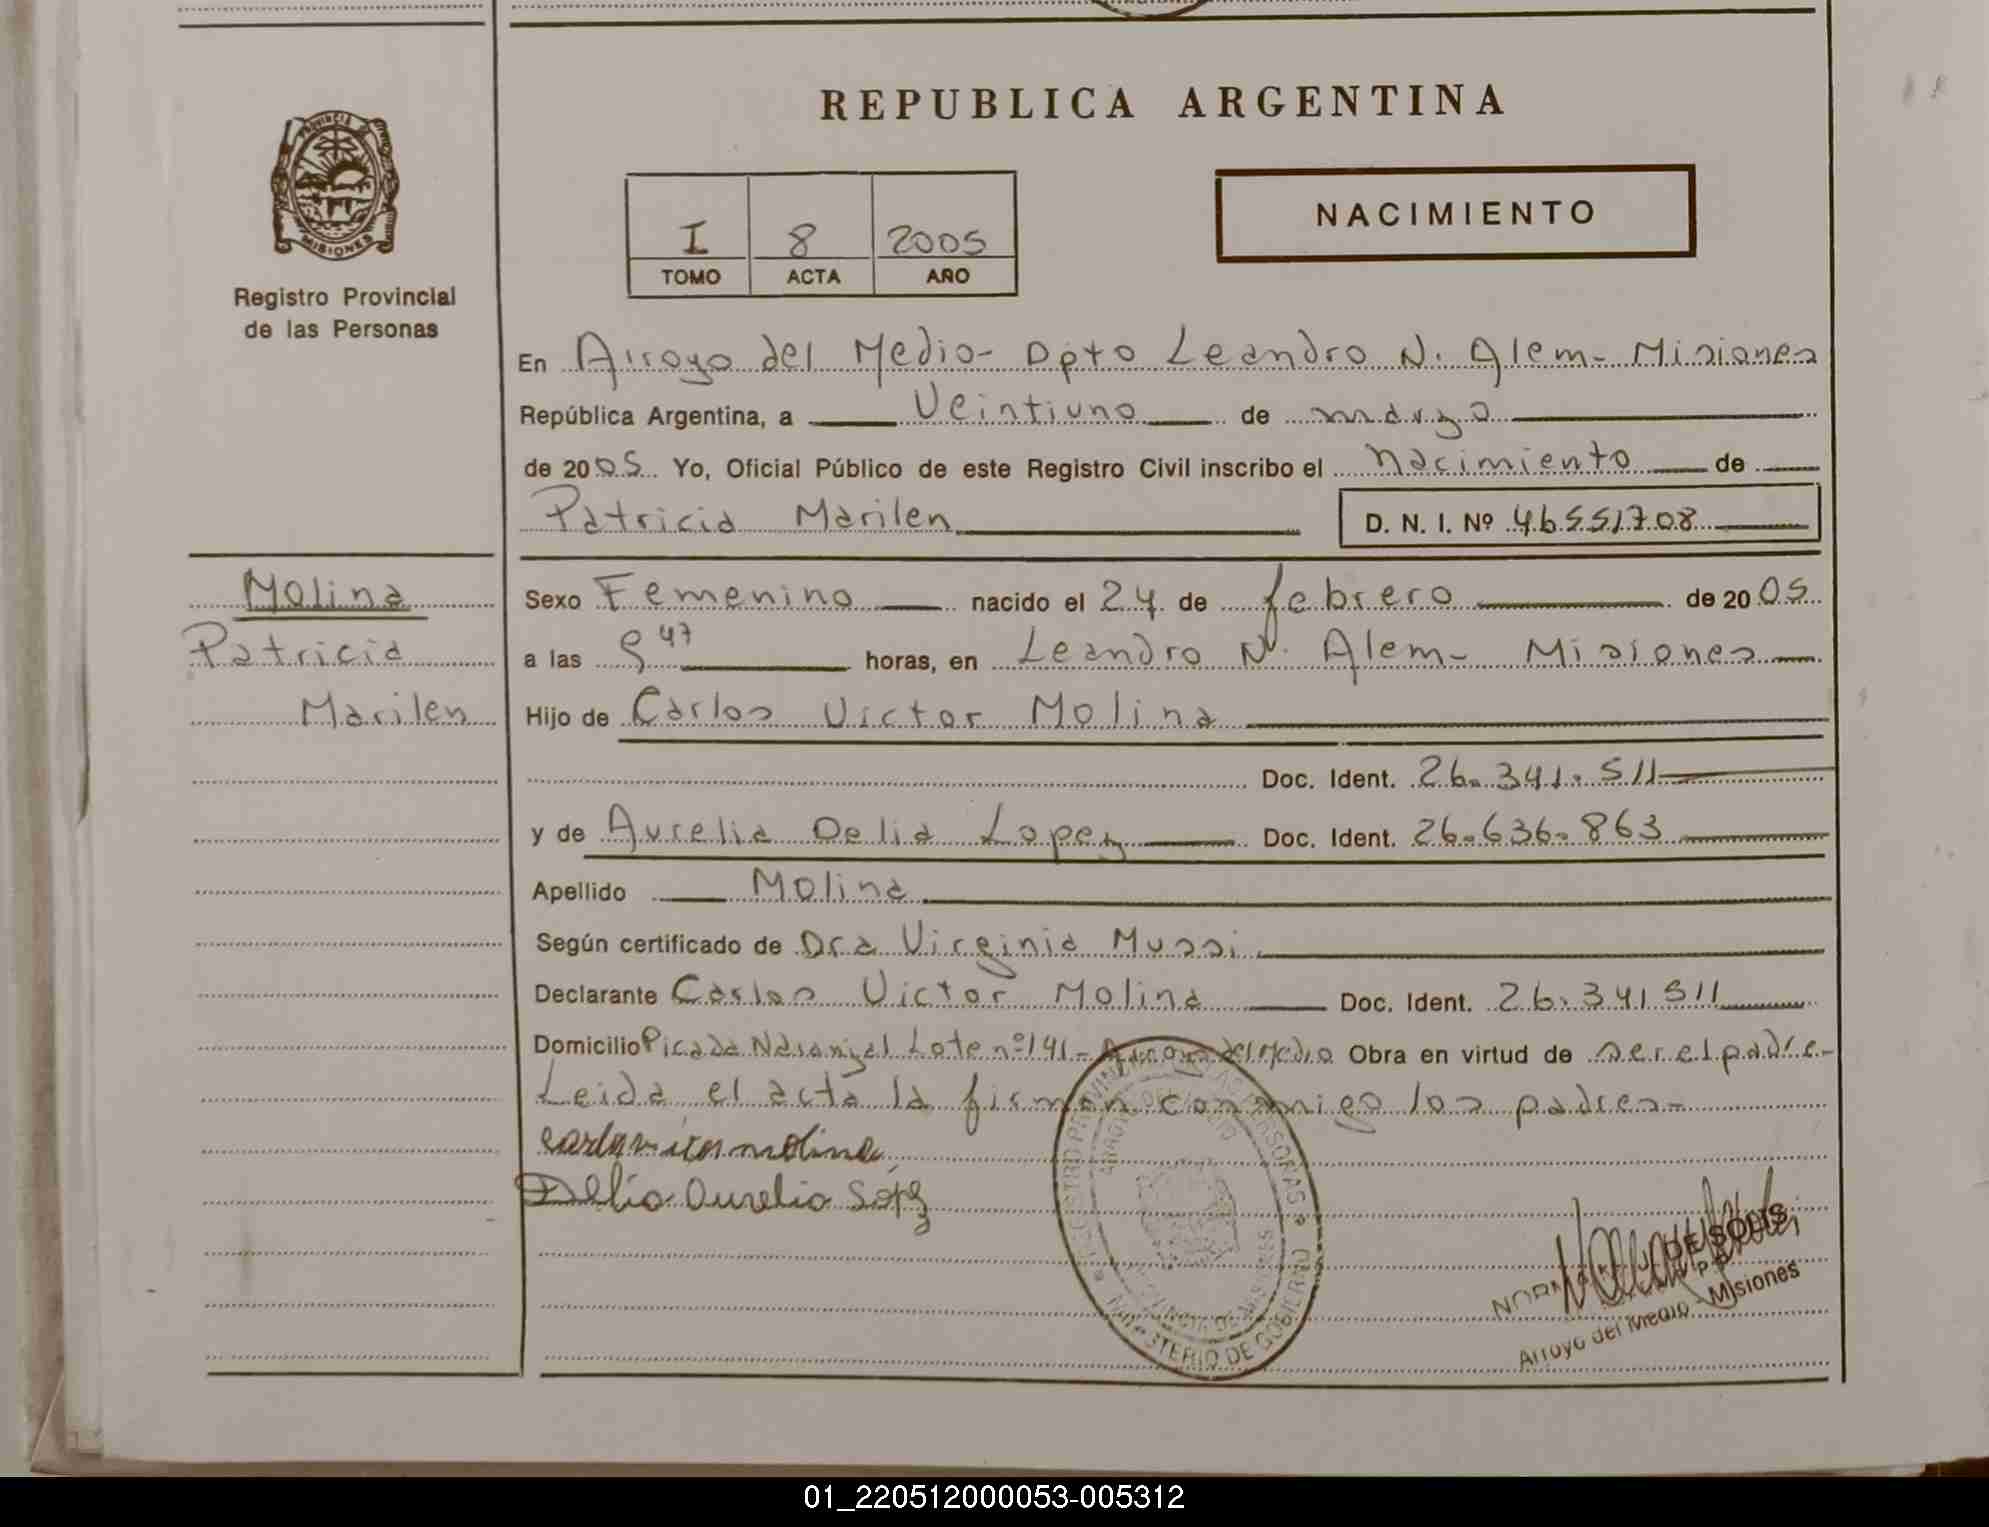 REPUBLICA ARGENTINA
PROVINCIA DE
MISIONES
Registro Provincial
de las Personas
I 8 2005
TOMO ACTA AÑO
NACIMIENTO
En Arroyo del Medio- Dpto Leandro N. Alem- Misiones
República Argentina, a Veintiuno de marzo
de 2005 Yo, Oficial Público de este Registro Civil inscribo el nacimiento de
Patricia Marilen D. N. I. Nº 46551708
Molina
Patricia
Marilen
Sexo Femenino nacido el 24 de febrero de 2005
a las 9 47 horas, en Leandro N. Alem- Misiones
Hijo de Carlos Victor Molina
Doc. Ident. 26.341.511
y de Aurelia Delia Lopez Doc. Ident. 26.636.863
Apellido Molina
Según certificado de Dra Virginia Mussi
Declarante Carlos Victor Molina Doc. Ident. 26.341511
Domicilio Picada Naranjal Lote nº 141- Arroyo del Medio Obra en virtud de ser el padre-
Leida el acta la firman conmigo los padres-
molina
Delia Aurelia Sopez
REGISTRO PROVINCIAL DE LAS PERSONAS
ARROYO DEL MEDIO
PROVINCIA DE MISIONES
MINISTERIO DE GOBIERNO
DE SOLIS
Arroyo del Medio - Misiones
01_220512000053-005312